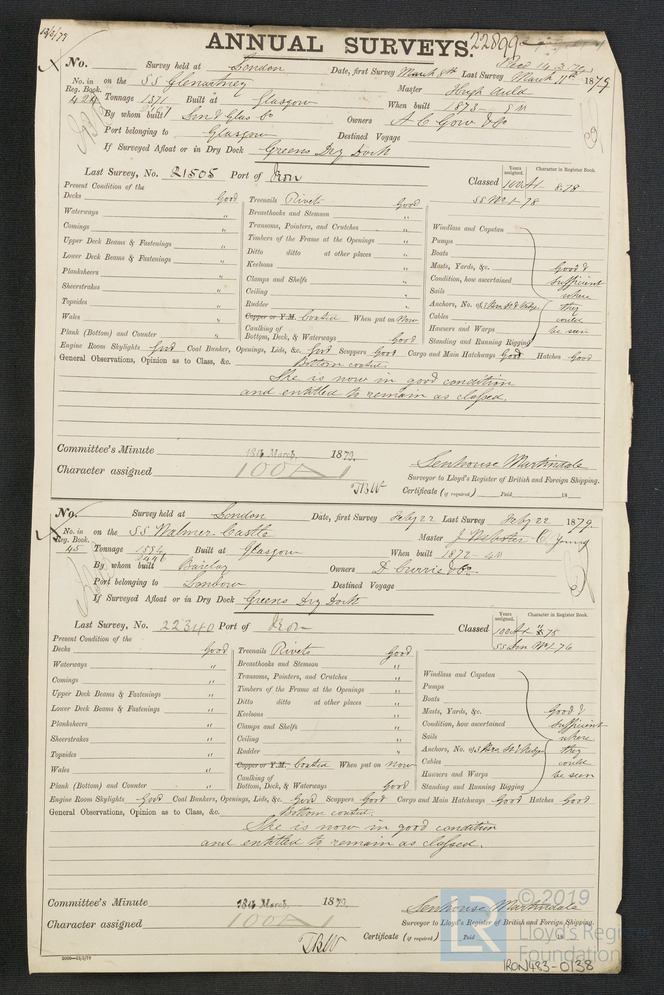 13/3/79
ANNUAL SURVEYS. 22899
No. Survey held at London Date, first Survey March 8th Last Survey March 11th 1879
No. in Reg. Book. 424 on the SS Glenartney Master Hugh Auld
Tonnage 1371 Built at Glasgow When built 1873 - 5M
By whom built Lond & Glas Co Owners A C Gow & Co
Port belonging to Glasgow Destined Voyage
If Surveyed Afloat or in Dry Dock Greens Dry Dock
Last Survey, No. 21505 Port of Iron Classed
Years assigned. Character in Register Book.
100A1 8.78
SS No 1-78
Present Condition of the
Decks Good Treenails Rivets Good
Waterways " Breasthooks and Stemson "
Comings " Transoms, Pointers, and Crutches " Windlass and Capstan
Upper Deck Beams & Fastenings " Timbers of the Frame at the Openings " Pumps
Lower Deck Beams & Fastenings " Ditto ditto at other places " Boats
Plankshears " Keelsons " Masts, Yards, &c. Good &
Sheerstrakes " Clamps and Shelfs " Condition, how ascertained sufficient
Topsides " Ceiling " Sails where
Wales " Rudder " Anchors, No. of they
Copper or Y.M. Coated When put on Now Cables could
Plank (Bottom) and Counter " Caulking of Bottom, Deck, & Waterways Good Hawsers and Warps be seen
Standing and Running Rigging
Engine Room Skylights Good Coal Bunker, Openings, Lids, &c. Good Scuppers Good Cargo and Main Hatchways Good Hatches Good
General Observations, Opinion as to Class, &c. Bottom coated.
She is now in good condition
and entitled to remain as classed.
Committee's Minute 18th March, 1879.
Character assigned 100A1
Senhouse Martindale
Surveyor to Lloyd's Register of British and Foreign Shipping.
TBW Certificate (if required) Paid 18
No. Survey held at London Date, first Survey Feby 22 Last Survey Feby 22 1879.
No. in Reg. Book. 45 on the SS Walmer Castle Master J Webster C. Young
Tonnage 1554 2446 Built at Glasgow When built 1872 - 4M
By whom built Barclay Owners D Currie & Co.
Port belonging to London Destined Voyage
If Surveyed Afloat or in Dry Dock Greens Dry Dock
Last Survey, No. 22340 Port of Iron Classed
Years assigned. Character in Register Book.
100A1 78
SS Lon No 1-76
Present Condition of the
Decks Good Treenails Rivets Good
Waterways " Breasthooks and Stemson "
Comings " Transoms, Pointers, and Crutches " Windlass and Capstan
Upper Deck Beams & Fastenings " Timbers of the Frame at the Openings " Pumps
Lower Deck Beams & Fastenings " Ditto ditto at other places " Boats
Plankshears " Keelsons " Masts, Yards, &c. Good &
Sheerstrakes " Clamps and Shelfs " Condition, how ascertained sufficient
Topsides " Ceiling " Sails where
Wales " Rudder " Anchors, No. of they
Copper or Y.M. Coated When put on Now Cables could
Plank (Bottom) and Counter " Caulking of Bottom, Deck, & Waterways Good Hawsers and Warps be seen
Standing and Running Rigging
Engine Room Skylights Good Coal Bunkers, Openings, Lids, &c. Good Scuppers Good Cargo and Main Hatchways Good Hatches Good
General Observations, Opinion as to Class, &c. Bottom coated.
She is now in good condition
and entitled to remain as classed.
Committee's Minute 18th March, 1879.
Character assigned 100A1
Senhouse Martindale
Surveyor to Lloyd's Register of British and Foreign Shipping.
TBW Certificate (if required) Paid 18
© 2019
LR Lloyd's Register
Foundation
IRON483-0138